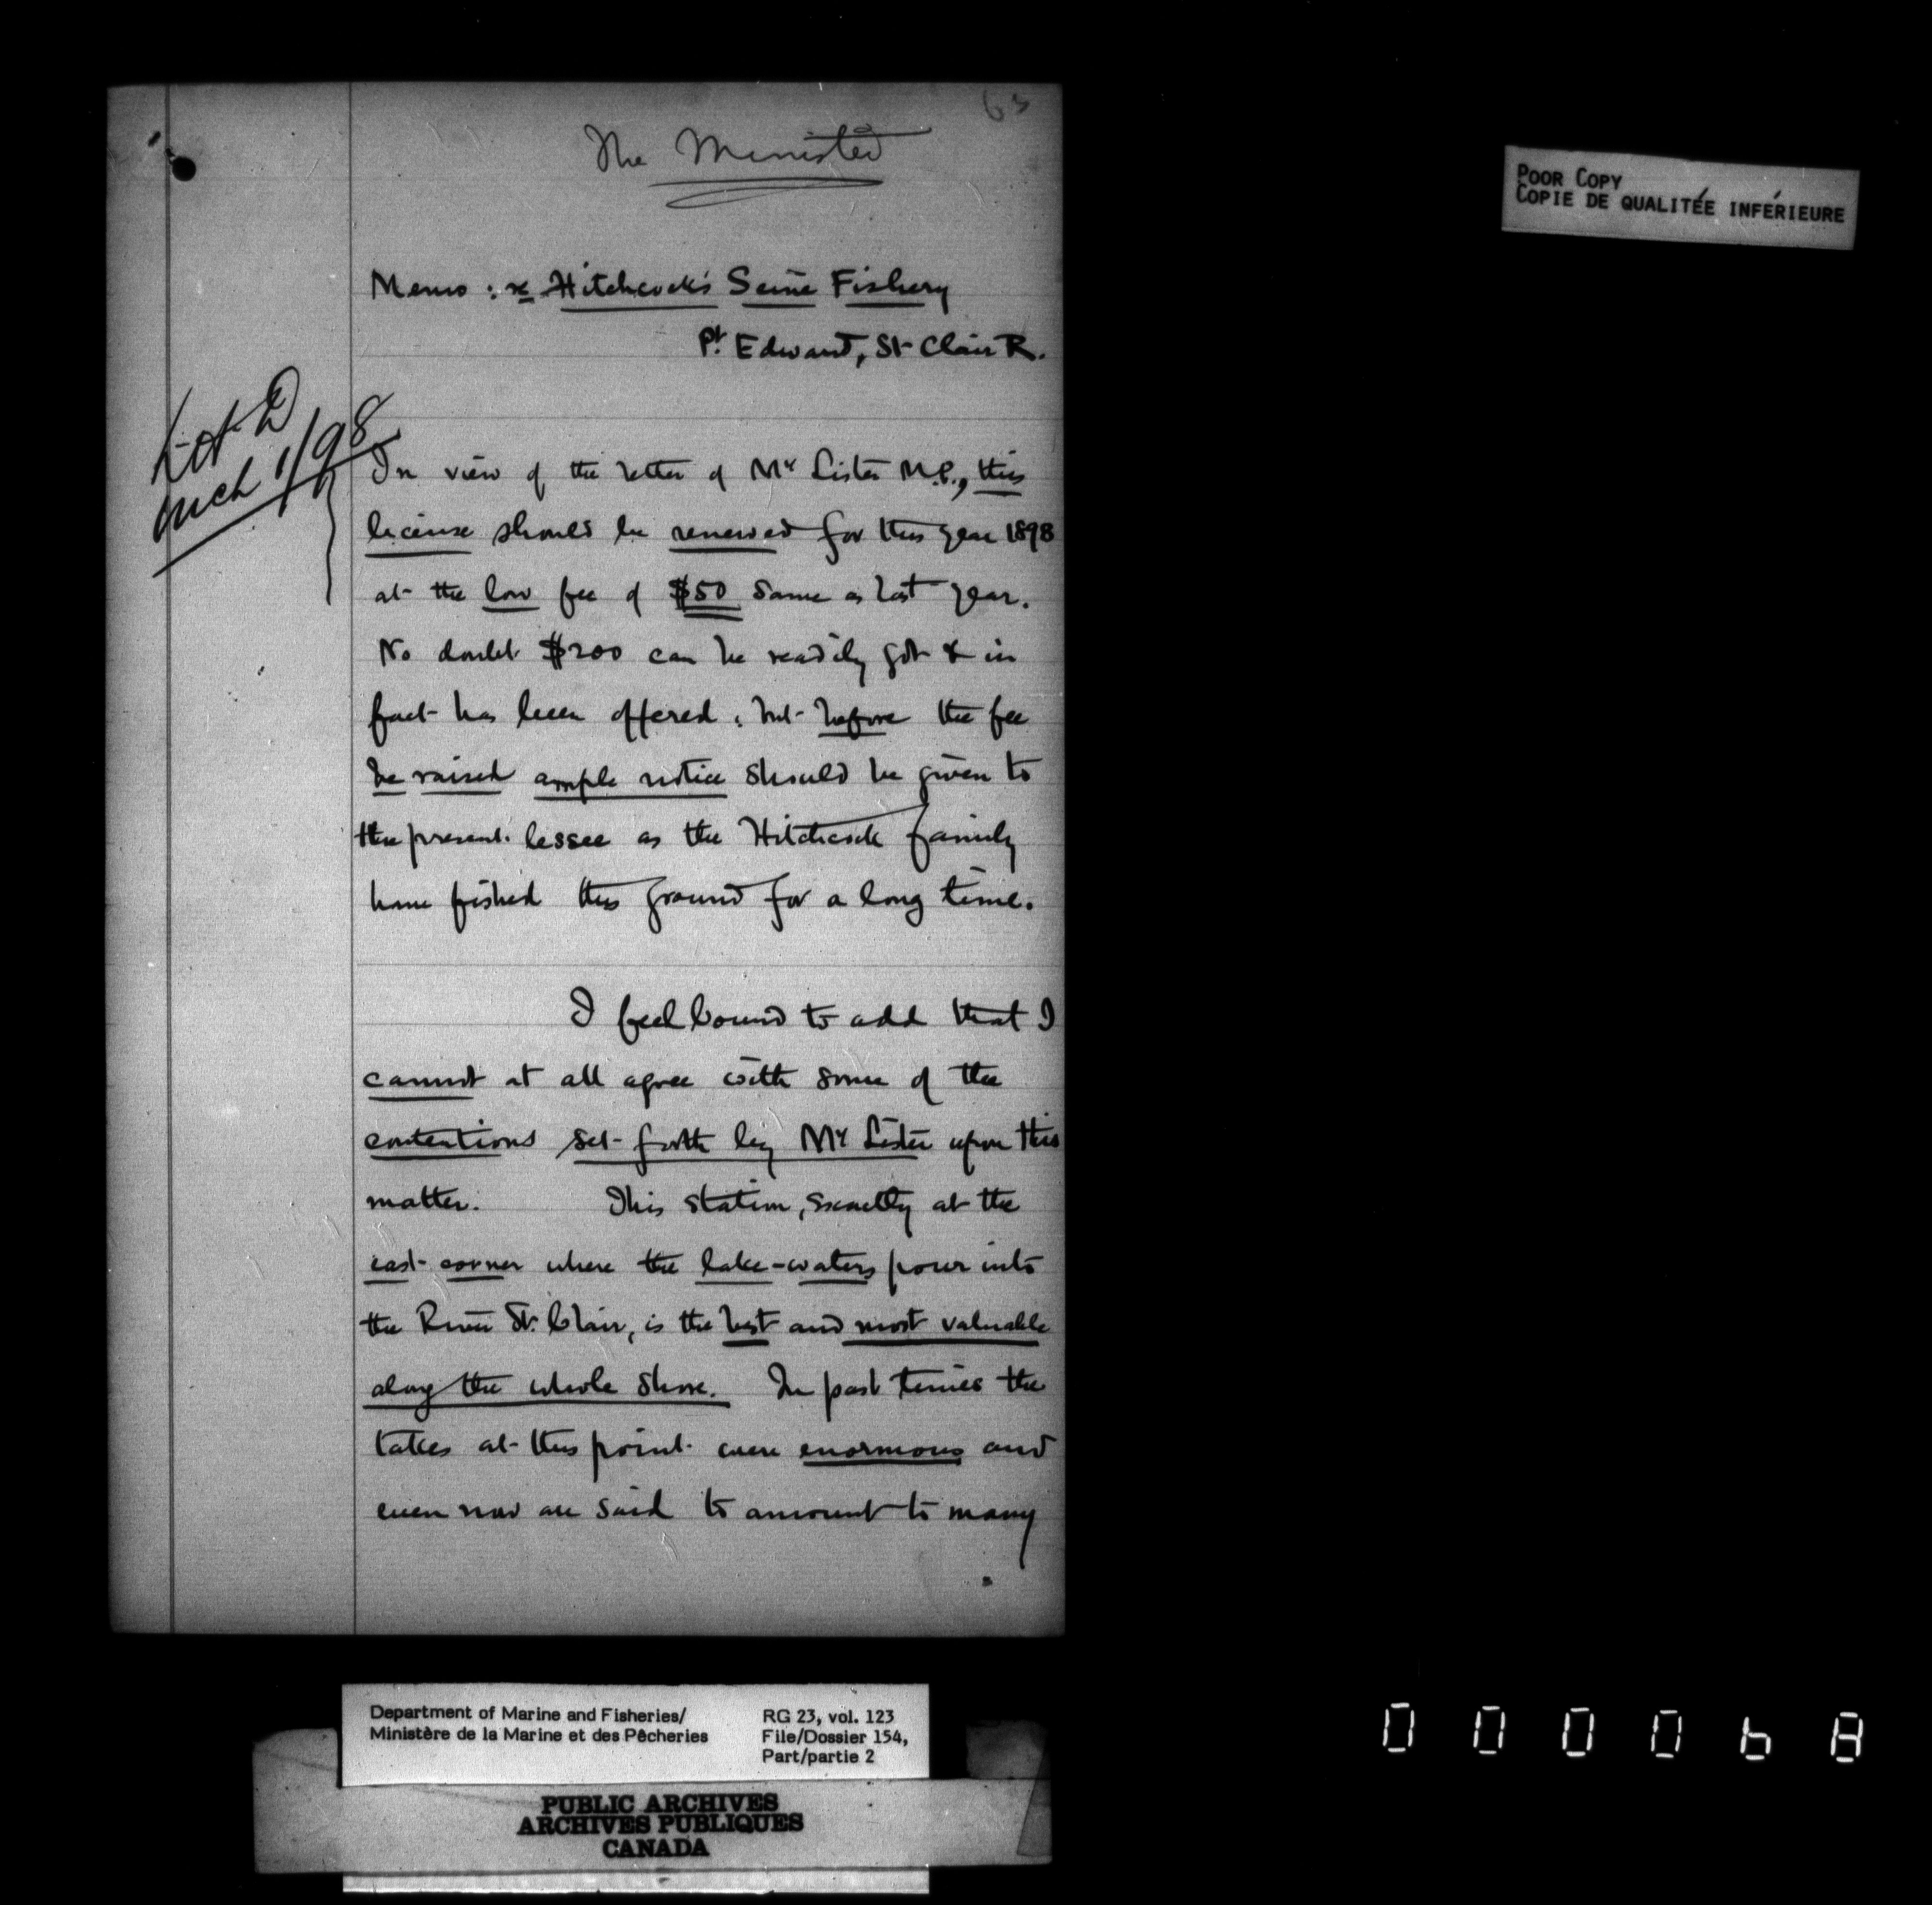 63
The Minister
Memo : re Hitchcock's Seine Fishery
Pt. Edward, St Clair R.
Mch 1/98
In view of the letter of Mr Lister M.P., this
license should be renewed for this year 1898
at the low fee of $50 same as last year.
No doubt $200 can be readily got & in
fact has been offered, but before the fee
be raised ample notice should be given to
the present lessee as the Hitchcock family
have fished this ground for a long time.
I feel bound to add that I
cannot at all agree with some of the
contentions set forth by Mr Lister upon this
matter. This station, exactly at the
east corner where the lake-waters pour into
the River St. Clair, is the best and most valuable
along the whole shore. In past times the
takes at this point were enormous and
even now are said to amount to many
POOR COPY
COPIE DE QUALITÉE INFÉRIEURE
Department of Marine and Fisheries/
Ministère de la Marine et des Pêcheries
RG 23, vol. 123
File/Dossier 154,
Part/partie 2
PUBLIC ARCHIVES
ARCHIVES PUBLIQUES
CANADA
000068